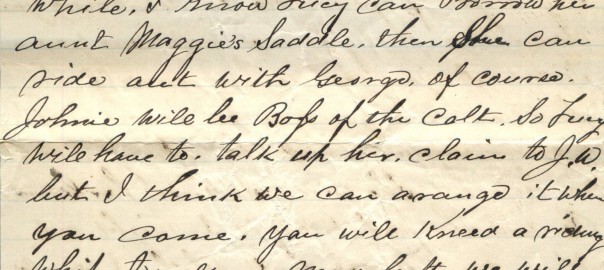 while, I know Lucy can borrow her
aunt Maggie's Saddle, then She can
ride out with George, of course.
Johnie will be Boss of the Colt. So Lucy
will have to. talk up her. claim to J.W.
but I think we can arange it when
you come. you will Kneed a riding